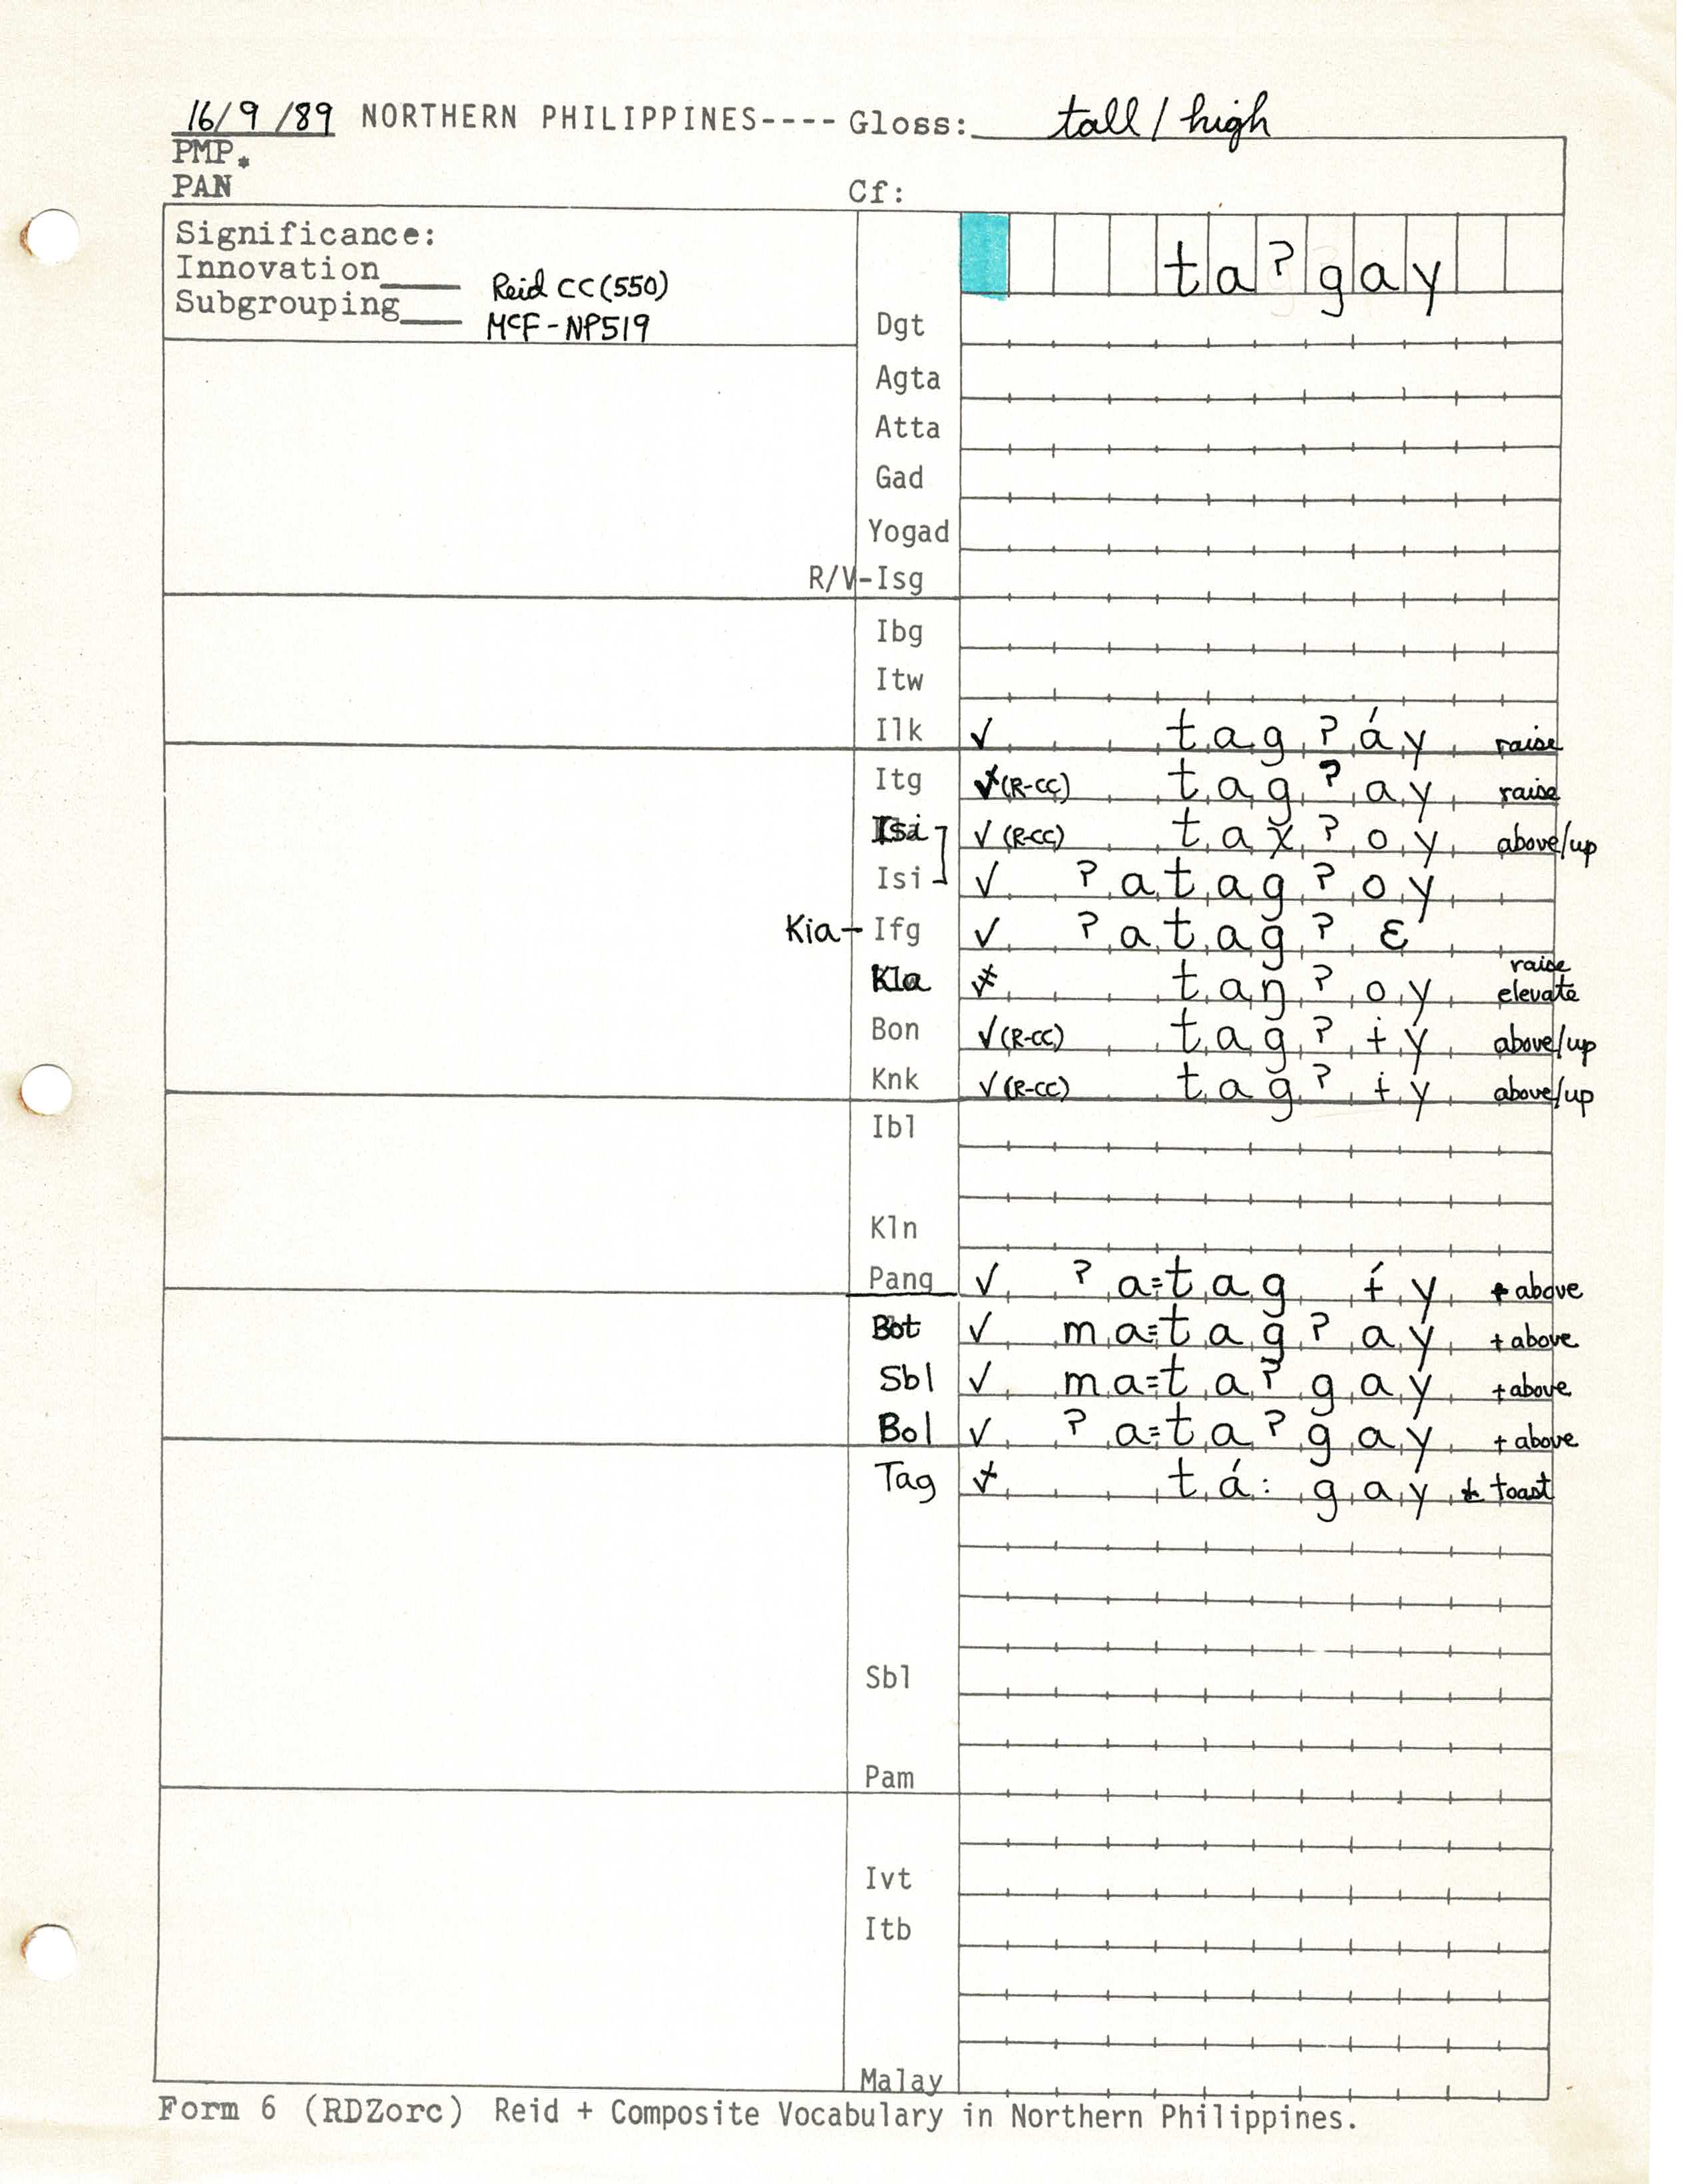 16/9/89 NORTHERN PHILIPPINES---- Gloss: tall / high
PMP.
PAN Cf:
Significance:
Innovation____ Reid CC (550)
Subgrouping____ McF-NP519
ta?gay
Dgt
Agta
Atta
Gad
Yogad
R/V-Isg
Ibg
Itw
Ilk ✓ tag?áy raise
Itg (R-CC) tag?ay raise
Isi ✓ (R-CC) tax?oy above/up
Isi ✓ ?atag?oy
Kia- Ifg ✓ ?atag?ɛ
Kla ≠ taŋ?oy raise elevate
Bon ✓ (R-CC) tag?ɨy above/up
Knk ✓ (R-CC) tag?ɨy above/up
Ibl
Kln
Pang ✓ ?a=tag ɨ́y + above
Bot ✓ ma=tag?ay + above
Sbl ✓ ma=ta?gay + above
Bol ✓ ?a=ta?gay + above
Tag tá:gay toast
Sbl
Pam
Ivt
Itb
Malay
Form 6 (RDZorc) Reid + Composite Vocabulary in Northern Philippines.